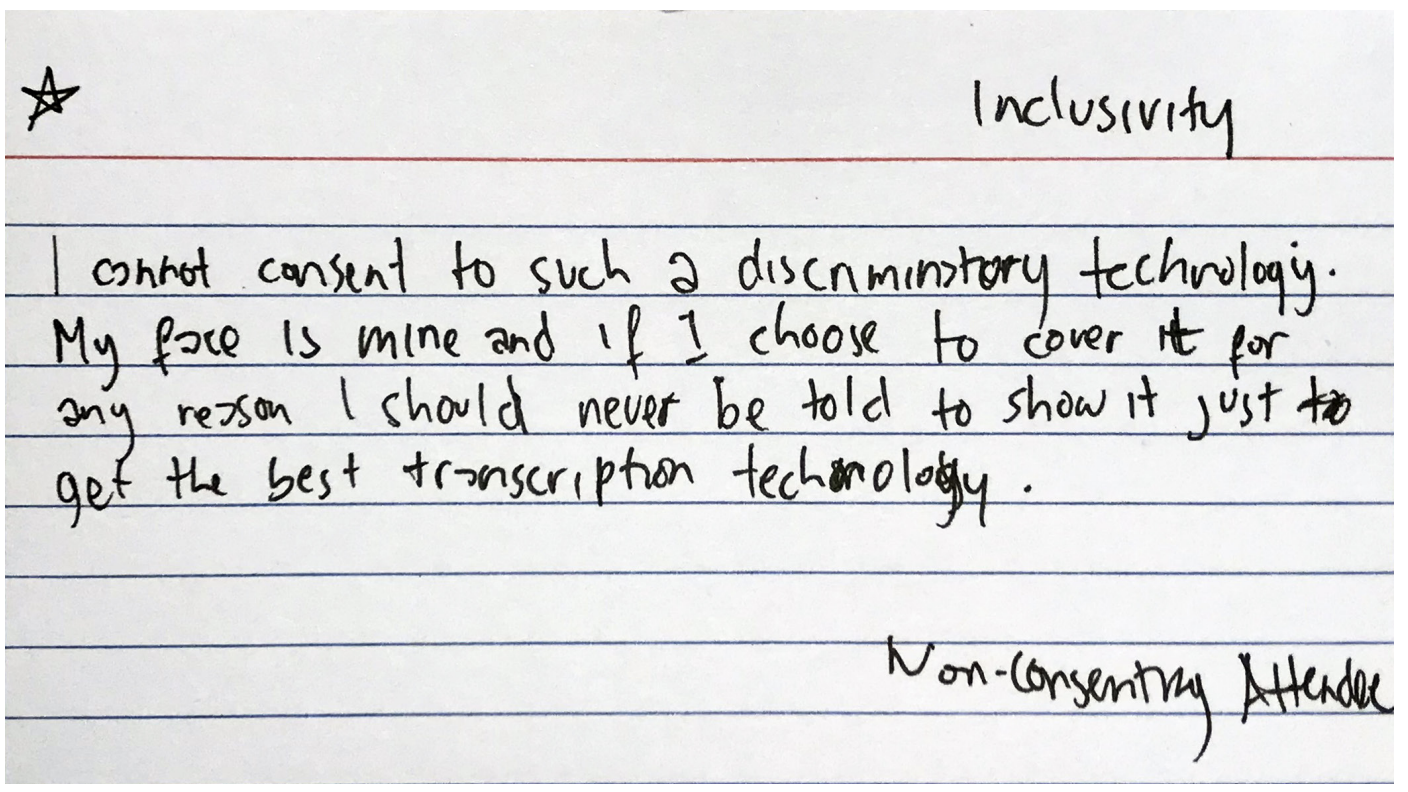 Inclusivity
I cannot consent to such a discriminatory technology.
My face is mine and if I choose to cover it for
any reason I should never be told to show it just to
get the best transcription technology.
Non-Consenting Attendee